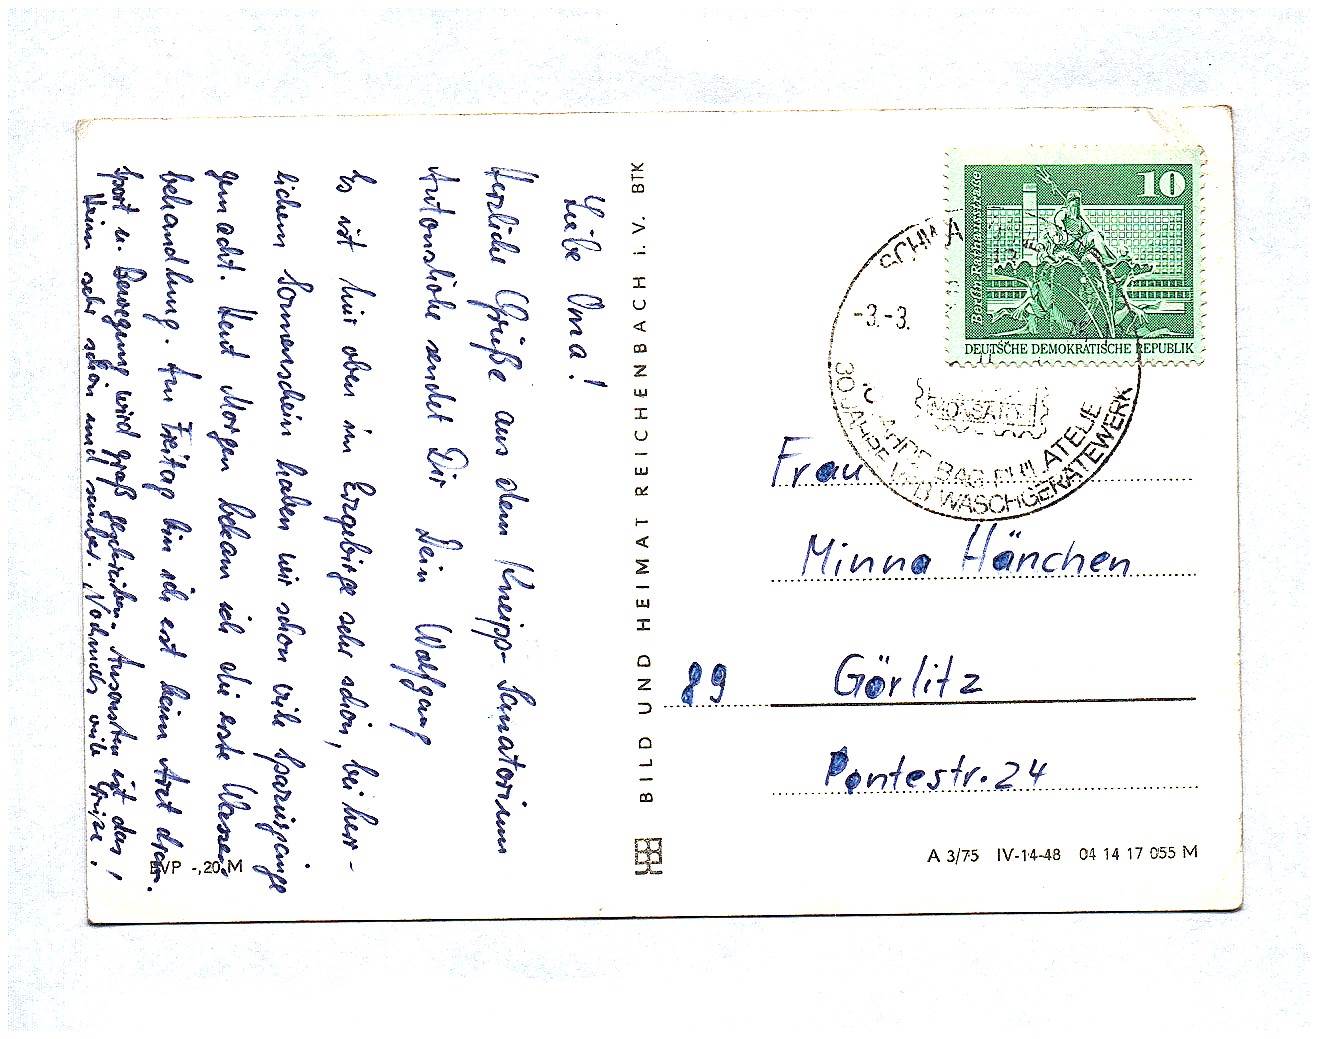 Liebe Oma!
Herzliche Grüße aus dem Kneipp-Sanatorium
Antonshöhe sendet Dir Dein Wolfgang
Es ist hier oben im Erzgebirge sehr schön, bei herr-
lichem Sonnenschein haben wir schon viele Spaziergänge
gemacht. Heut Morgen bekam ich die erste Wasser
behandlung. Am Freitag bin ich erst beim Arzt dran.
Sport u. Bewegung wird groß geschrieben. Ansonsten ist das
Heim sehr schön und sauber. Nochmals viele Grüße.
EVP -,20 M
BILD UND HEIMAT REICHENBACH i. V. BTK
10
Berlin-Rathausstraße
DEUTSCHE DEMOKRATISCHE REPUBLIK
SCHWA
-3.-3.
JAHRE BAG PHILATELIE
30 JAHRE VEB WASCHGERÄTEWERK
Frau
Minna Hänchen
89 Görlitz
Pontestr. 24
A 3/75 IV-14-48 04 14 17 055 M